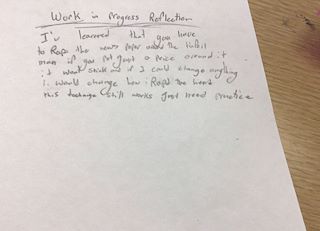 Work in Progress Reflection
I'v learned that you have
to Rap the news paper around the tinfoil
man if you put just a price around it
it wont stick and if I could change anything
i would change how i Rapt the
this technige still works Just need practice